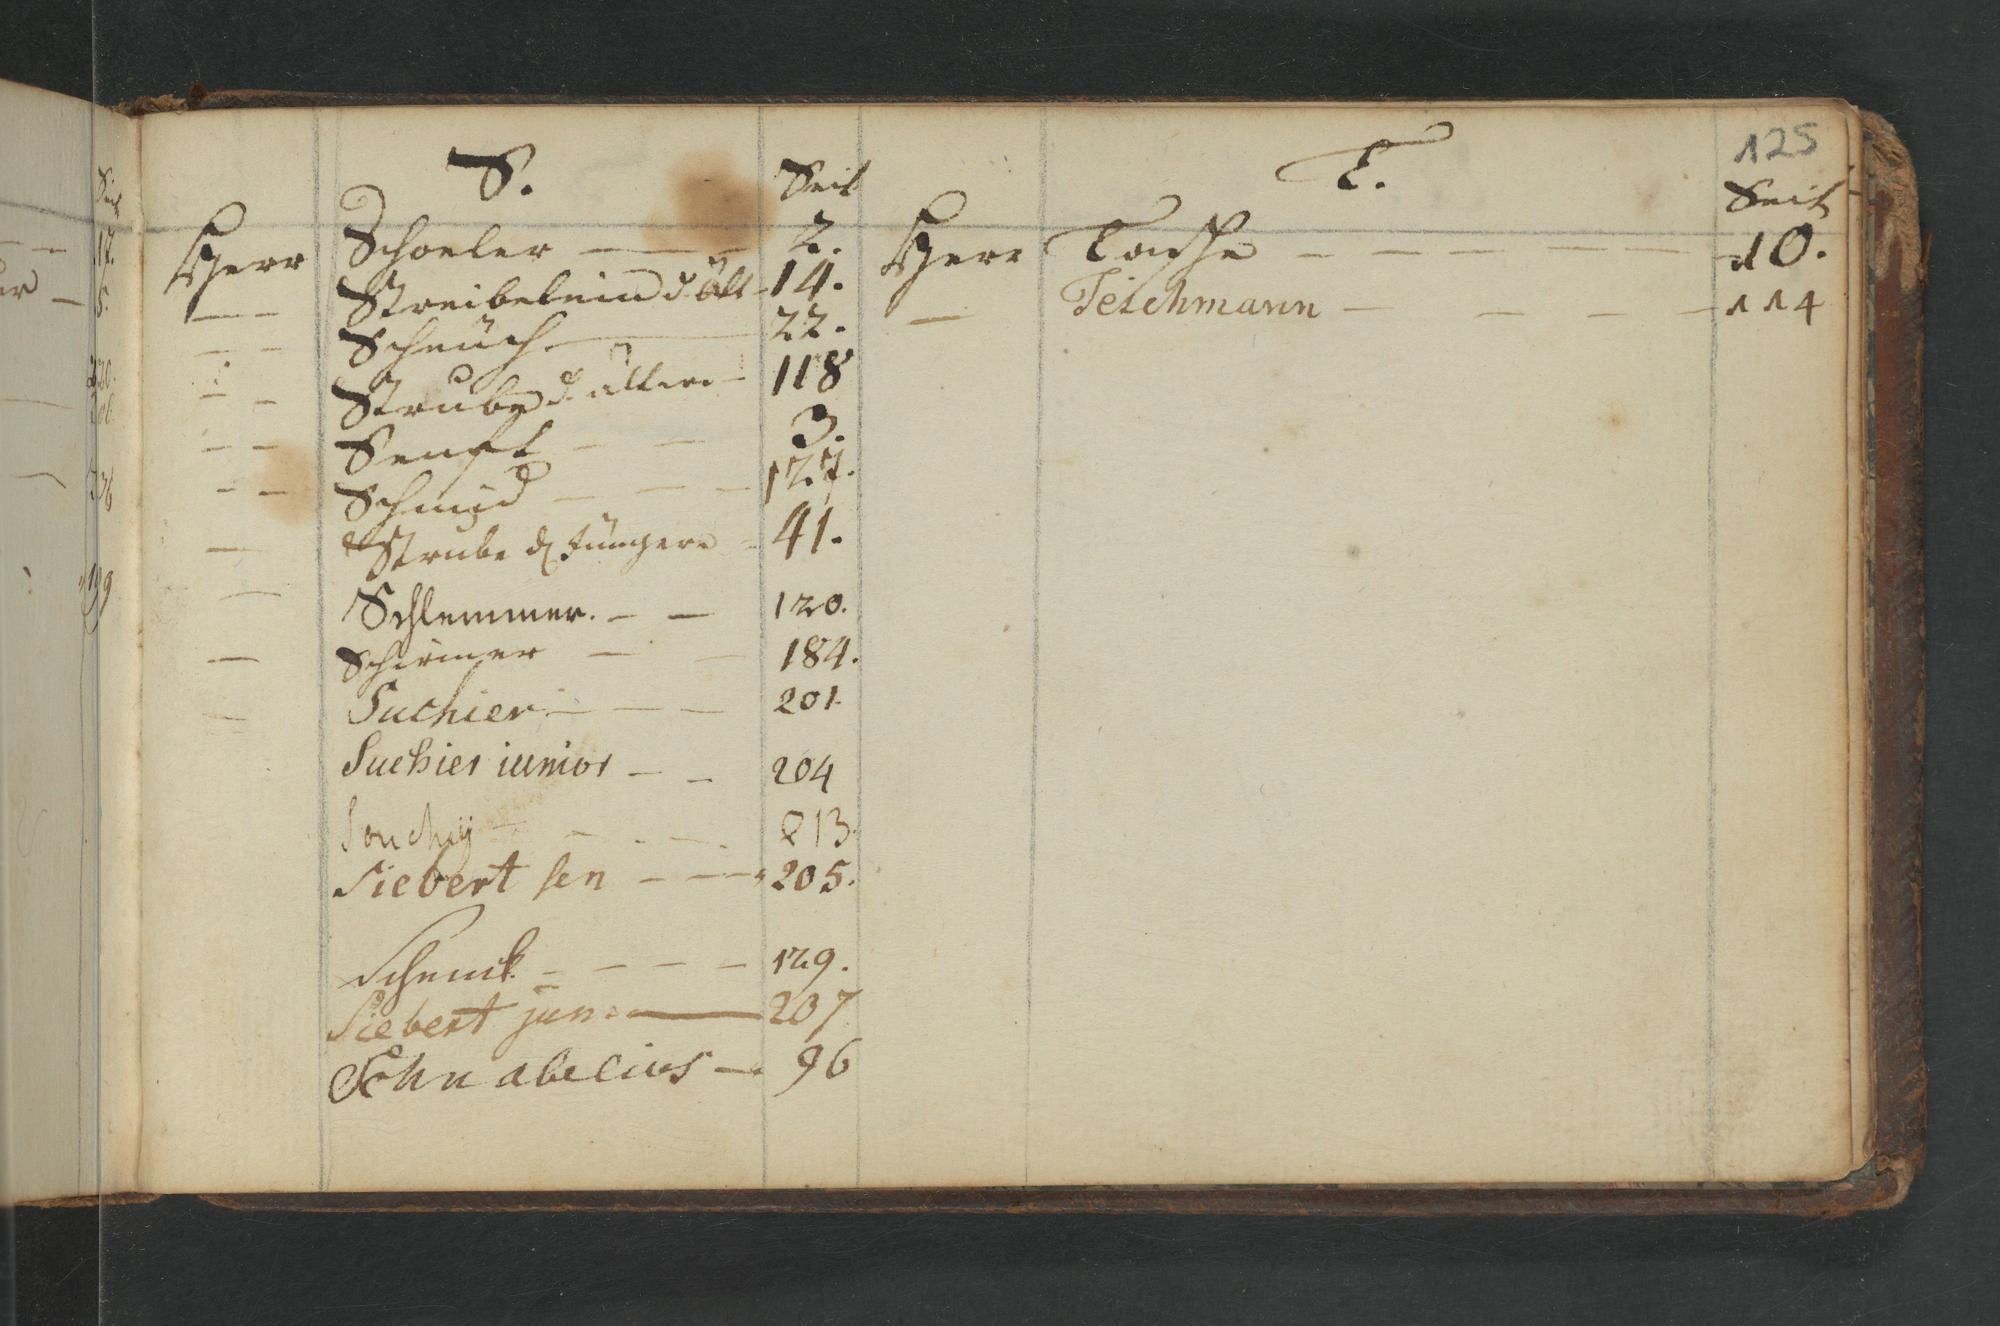 125
S. Seit
Herr Schoeler — — — 2.
— — Streibelein d. ält. — 14.
— — Scheuch — 22.
— — Strube d. ältere — 118
— — Senft — — 3.
— — Schmid — — — 127.
— Strube d. Jüngere — 41.
— Schlemmer. — — 120.
— Schirmer — — 184.
— Suchier — — — 201.
Suchier iunior — — 204
Souchay — — — 213.
Siebert sen — — — 205.
Schenck — — — — 129.
Siebert jun. — 207
Schnabelius — 96
T. Seit
Herr Tasche — — — — — — 10.
— Teichmann — — — — 114
17.
5.
199